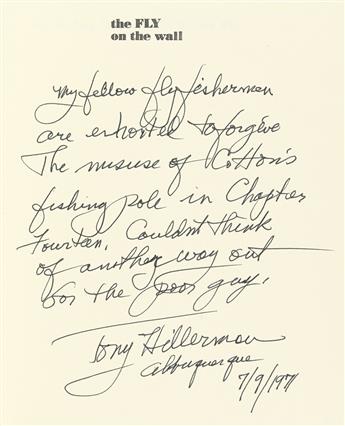 the FLY
on the wall
My fellow fly fisherman
are exhorted to forgive
The misuse of Cotton's
fishing pole in Chapter
Fourteen. Couldn't think
of another way out
for the poor guy.
Tony Hillerman
Albuquerque
7/9/1971